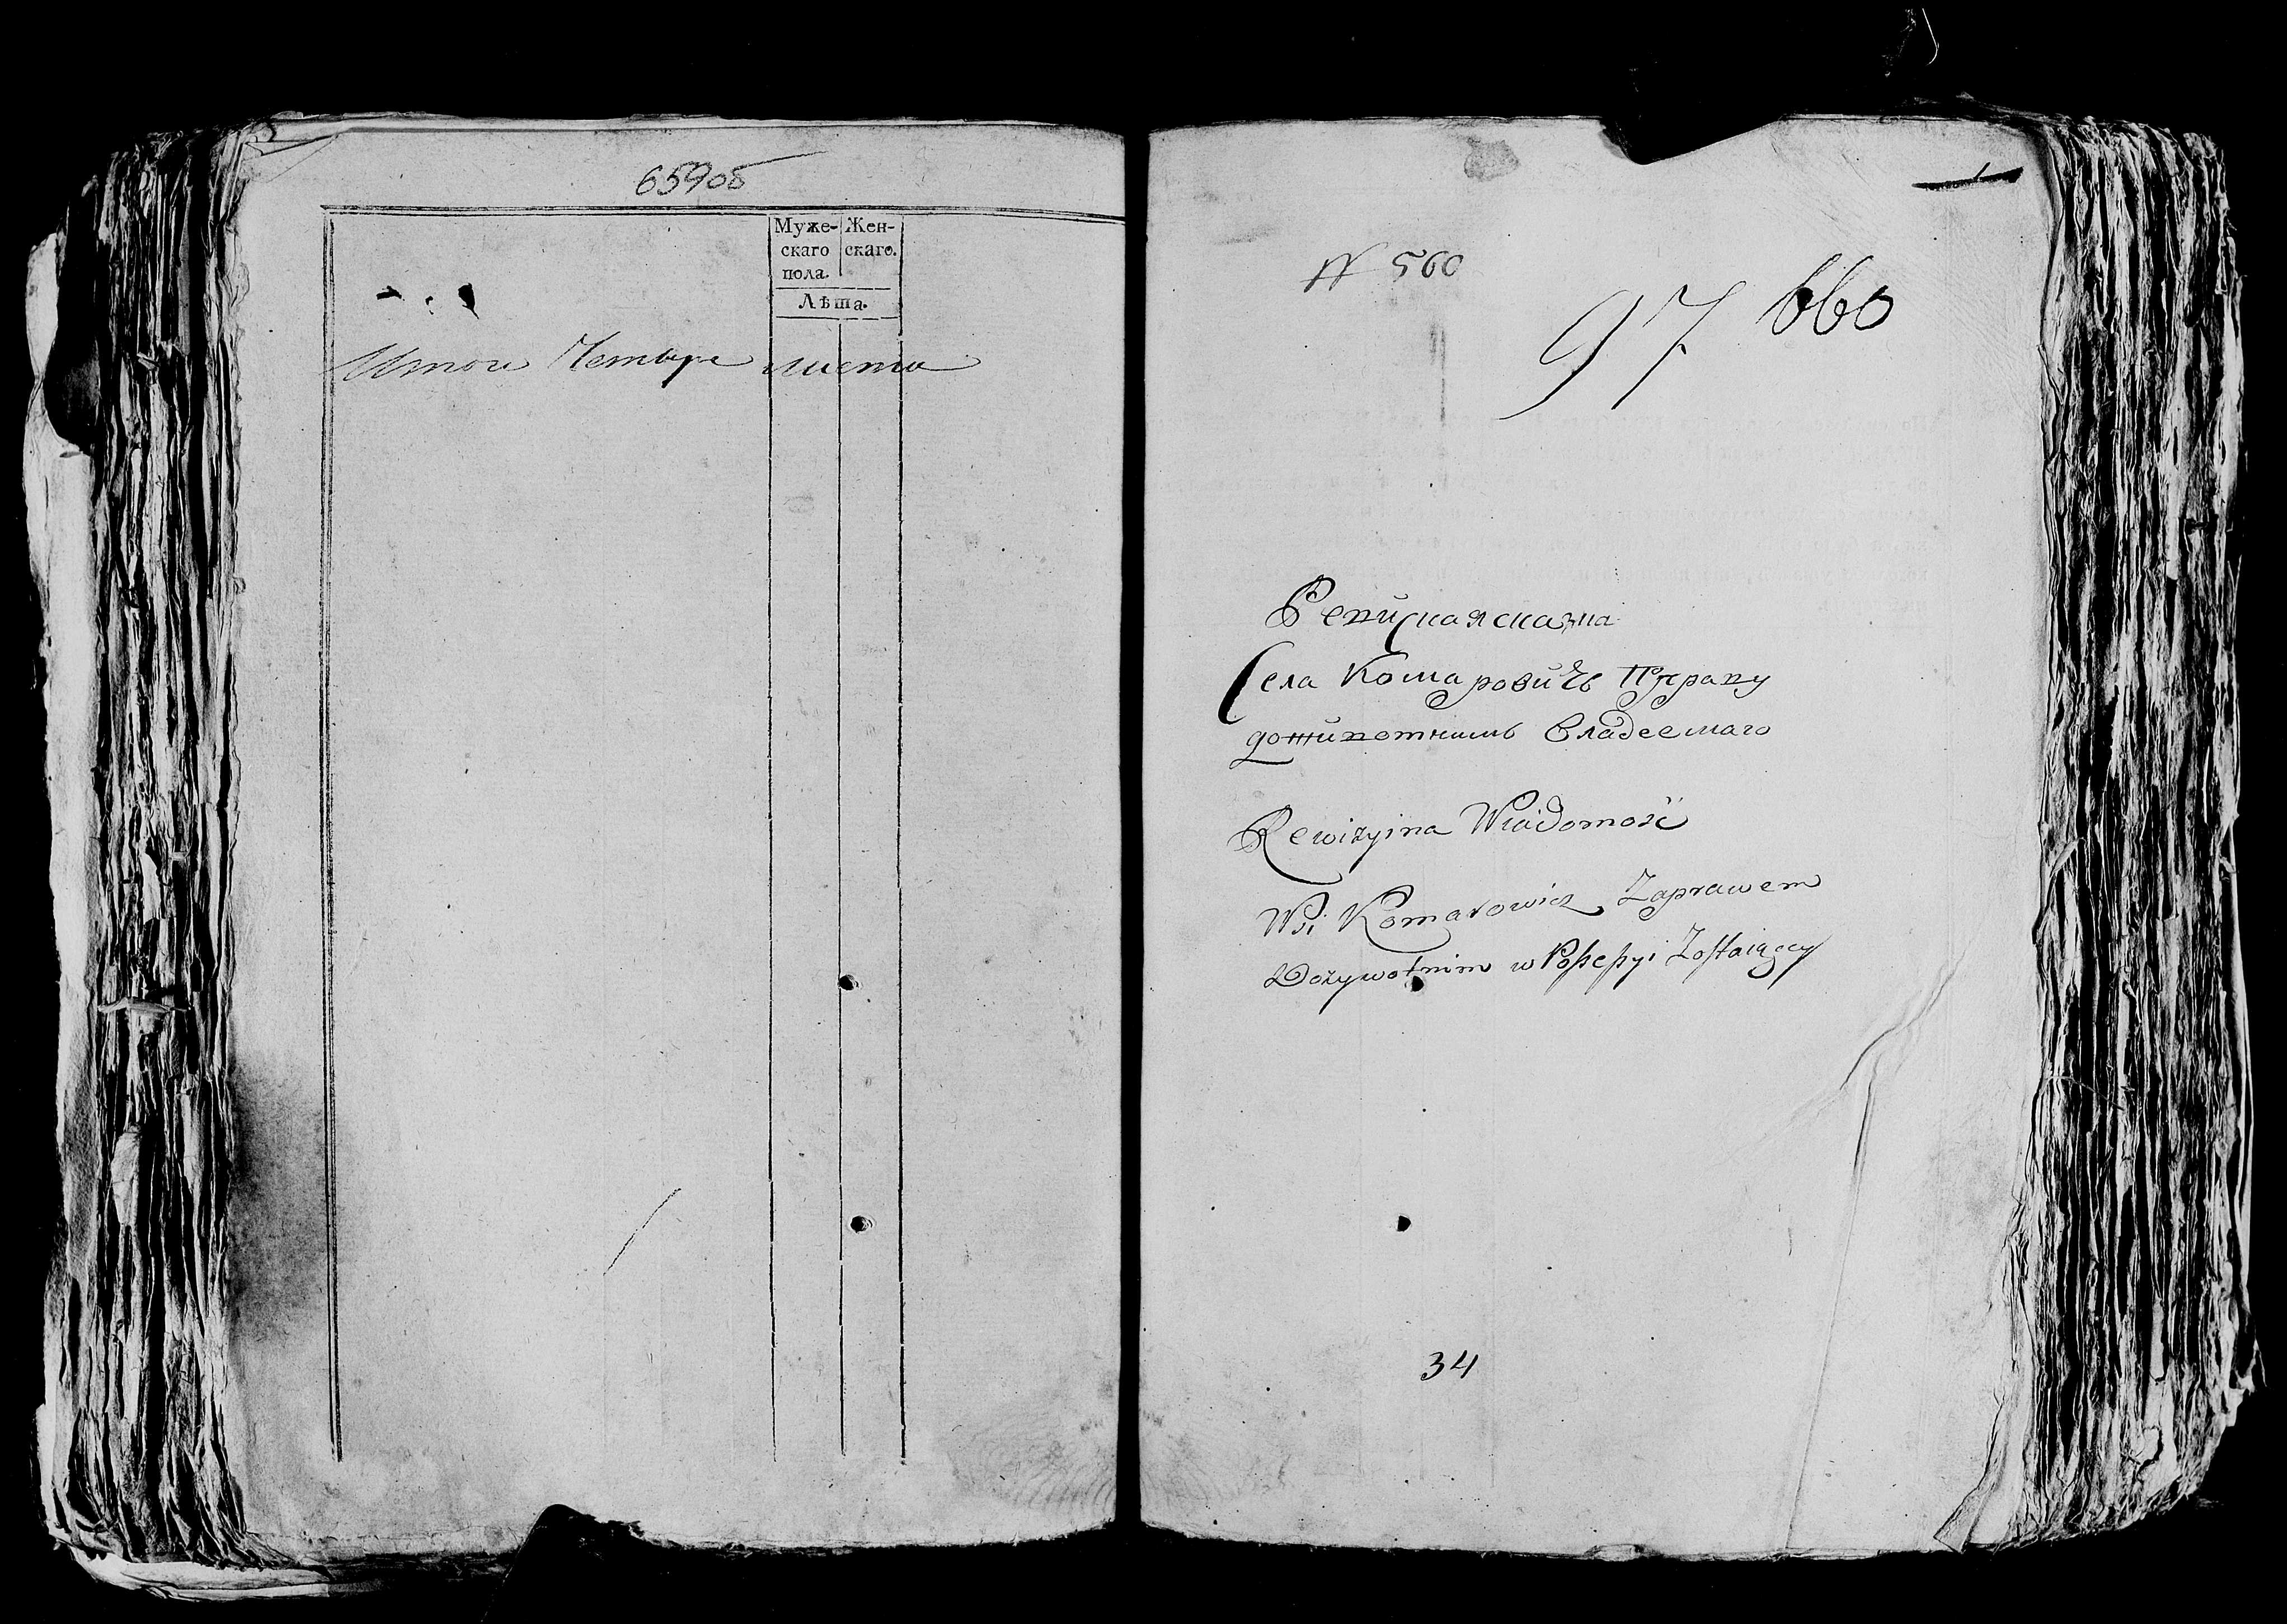 659об
Муже-
скаго
пола.
Жен-
скаго.
Лѣта.
Итого Четыре листа
1
N 560
97 660
Ревиская сказка
Села Комаровичъ П праву
доживотнимъ Владеемаго
Rewizyina Wiadomość
Wsi Komarowicz, Zaprawem
Dożywotnim w Possessyi Zostaiącey
34